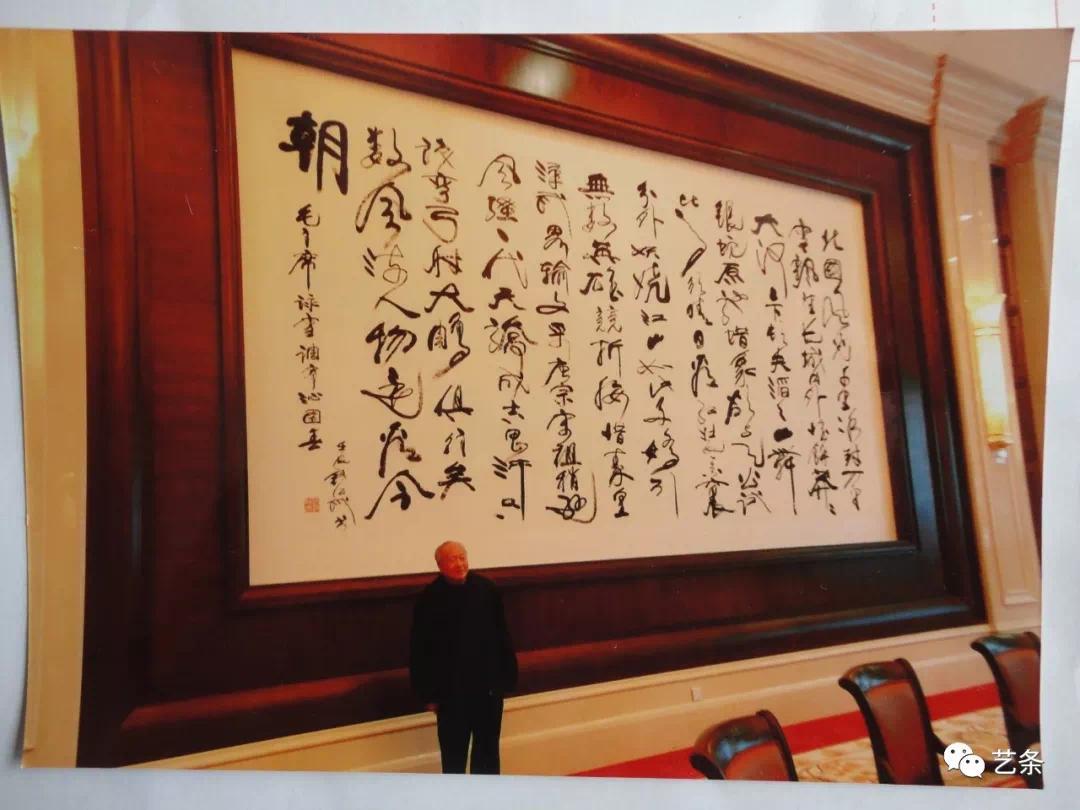 北國風光千里冰封万里
雪飘望长城内外惟馀莽莽
大河上下顿失滔滔山舞
银蛇原驰蜡象欲与天公试
比高须晴日看红装素裹
分外妖娆江山如此多娇引
無数英雄競折腰惜秦皇
漢武略输文采唐宗宋祖稍逊
风骚一代天骄成吉思汗只
识弯弓射大雕俱往矣
数风流人物还看今
朝
毛主席詠雪词沁园春
艺条